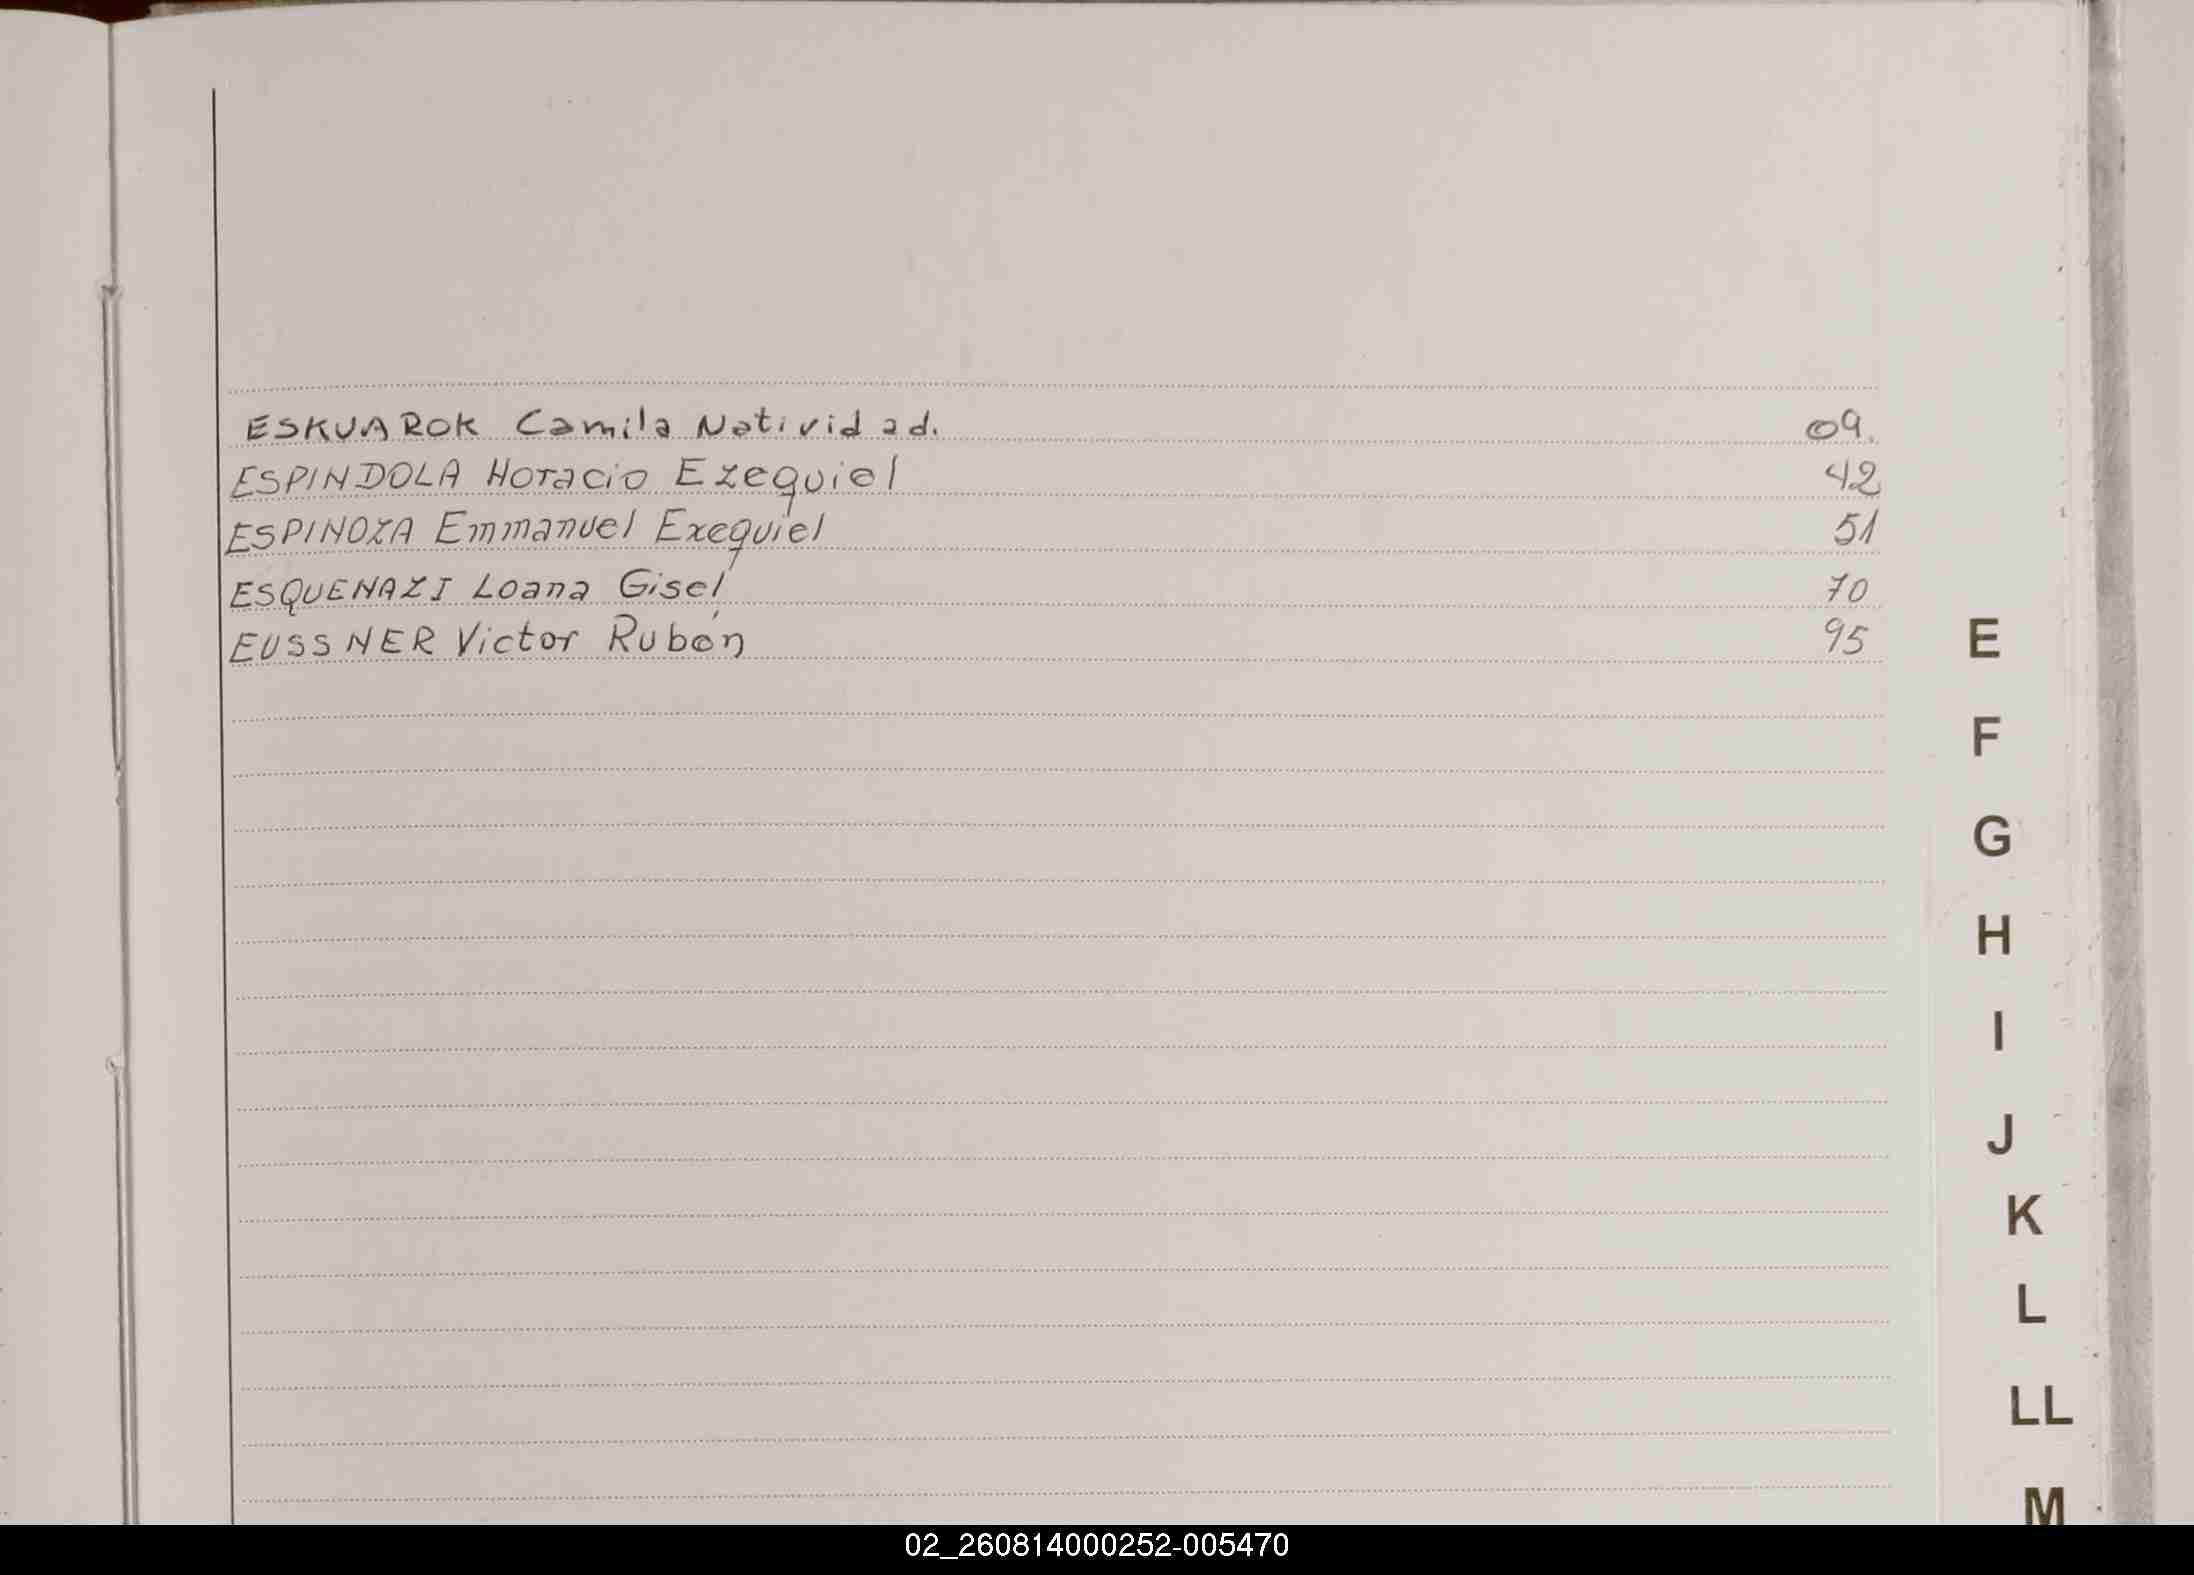 ESKUAROK Camila Natividad. 09.
ESPINDOLA Horacio Ezequiel 42
ESPINOZA Emmanuel Exequiel 51
ESQUENAZI Loana Gisel 70
EUSSNER Victor Rubén 95
E
F
G
H
I
J
K
L
LL
M
02_260814000252-005470